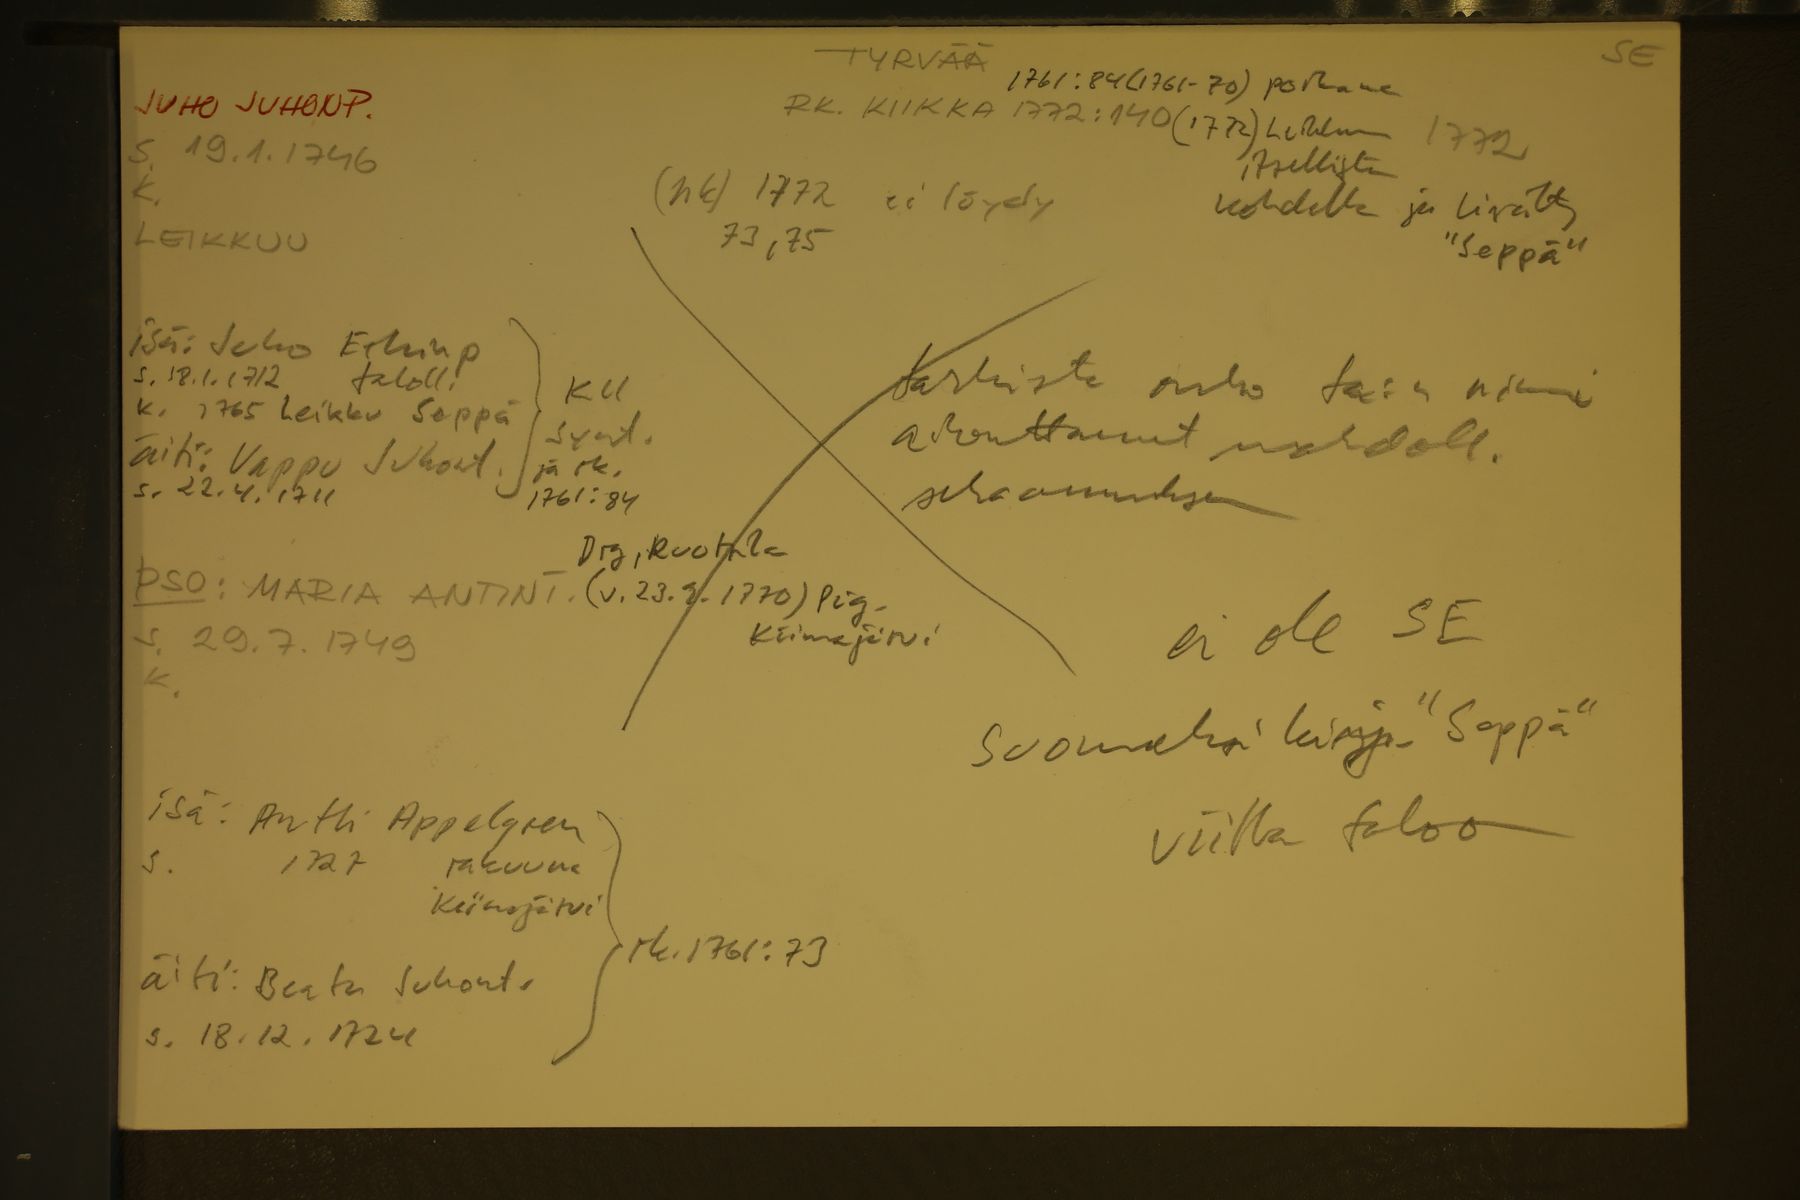 TYRVÄÄ
SE
JUHO JUHONP.
1761:84 (1761-70) poikana
RK. KIIKKA 1772:140 (1772) Leikkuu 1772
s. 19.1.1746
itsellistä
k.
(hk) 1772 ei löydy
kohdalla ja lisätty
73,75
"Seppä"
LEIKKUU
isä: Juho Erkinp
s. 18.1.1712 taloll.
k. 1765 Leikku Seppä
äiti: Vappu Juhont.
s. 22.4.1711
KII
synt.
ja rk.
1761:84
tarkista onko tal:n nimi
aiheuttanut mahdoll.
sekaannuksen
Drg, Ruotila
PSO: MARIA ANTINT. (v. 23.9.1770) Pig.
Kiimajärvi
s. 29.7.1749
k.
ei ole SE
Suomeksi kirj. "Seppä"
viittaa taloon
isä: Antti Appelgren
s. 1727 rakuuna
Kiimajärvi
rk. 1761:73
äiti: Beata Juhont.
s. 18.12.1724